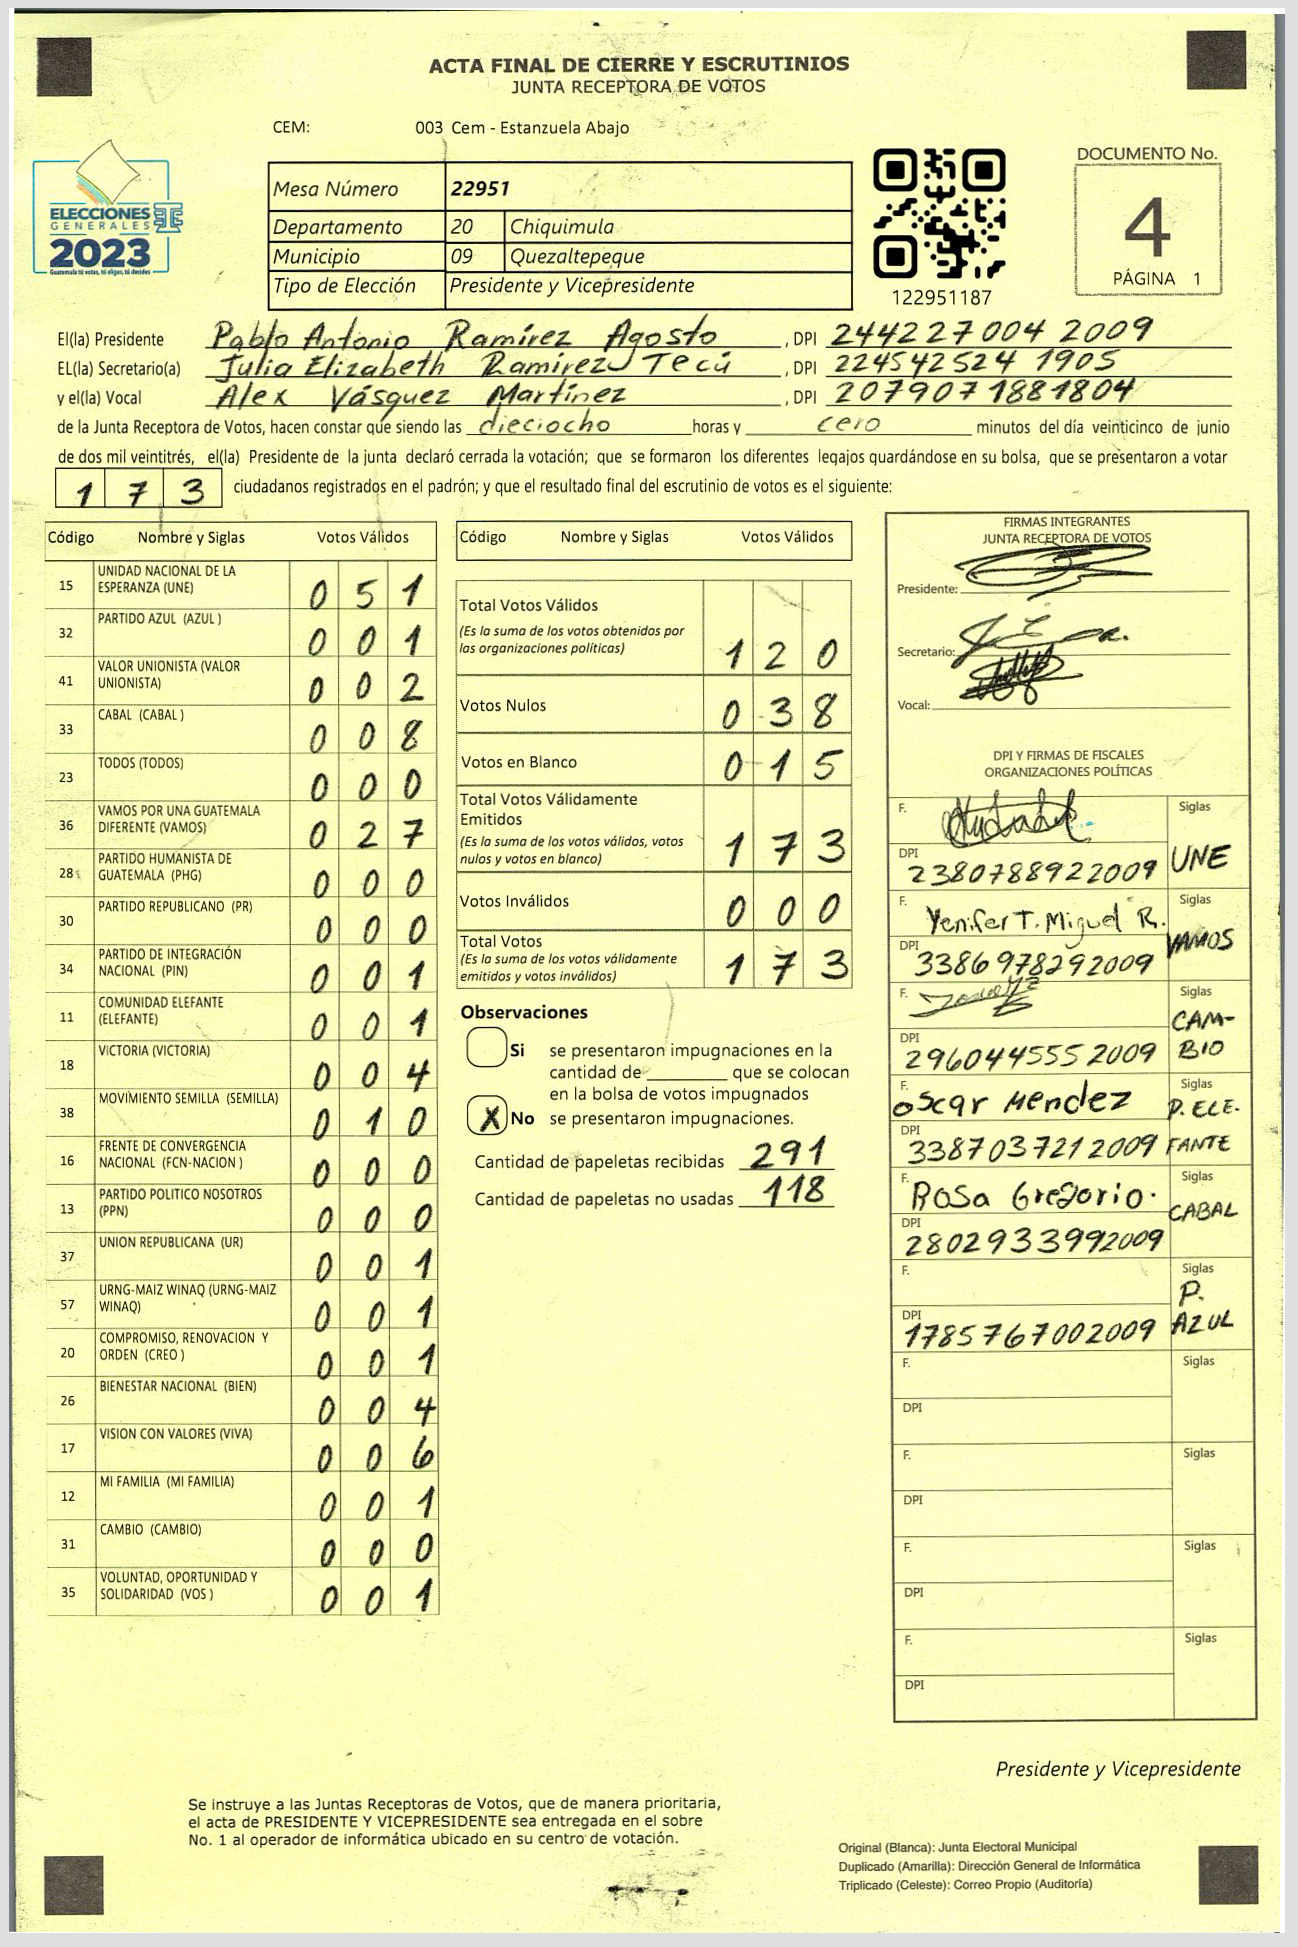 ACTA FINAL DE CIERRE Y ESCRUTINIOS
JUNTA RECEPTORA DE VOTOS
CEM: 003 Cem - Estanzuela Abajo
ELECCIONES
GENERALES
2023
Guatemala tú votas, tú eliges, tú decides
Mesa Número 22951
Departamento 20 Chiquimula
Municipio 09 Quezaltepeque
Tipo de Elección Presidente y Vicepresidente
122951187
DOCUMENTO No.
4
PÁGINA 1
El(la) Presidente Pablo Antonio Ramírez Agosto, DPI 244227004 2009
EL(la) Secretario(a) Julia Elizabeth Ramírez Tecú, DPI 224542524 1905
y el(la) Vocal Alex Vásquez Martínez, DPI 2079071881804
de la Junta Receptora de Votos, hacen constar que siendo las dieciocho horas y cero minutos del día veinticinco de junio
de dos mil veintitrés, el(la) Presidente de la junta declaró cerrada la votación; que se formaron los diferentes legajos guardándose en su bolsa, que se presentaron a votar
1 7 3 ciudadanos registrados en el padrón; y que el resultado final del escrutinio de votos es el siguiente:
Código Nombre y Siglas Votos Válidos
15 UNIDAD NACIONAL DE LA
ESPERANZA (UNE) 0 5 1
32 PARTIDO AZUL (AZUL ) 0 0 1
41 VALOR UNIONISTA (VALOR
UNIONISTA) 0 0 2
33 CABAL (CABAL ) 0 0 8
23 TODOS (TODOS) 0 0 0
36 VAMOS POR UNA GUATEMALA
DIFERENTE (VAMOS) 0 2 7
28 PARTIDO HUMANISTA DE
GUATEMALA (PHG) 0 0 0
30 PARTIDO REPUBLICANO (PR) 0 0 0
34 PARTIDO DE INTEGRACIÓN
NACIONAL (PIN) 0 0 1
11 COMUNIDAD ELEFANTE
(ELEFANTE) 0 0 1
18 VICTORIA (VICTORIA) 0 0 4
38 MOVIMIENTO SEMILLA (SEMILLA) 0 1 0
16 FRENTE DE CONVERGENCIA
NACIONAL (FCN-NACION ) 0 0 0
13 PARTIDO POLITICO NOSOTROS
(PPN) 0 0 0
37 UNION REPUBLICANA (UR) 0 0 1
57 URNG-MAIZ WINAQ (URNG-MAIZ
WINAQ) 0 0 1
20 COMPROMISO, RENOVACION Y
ORDEN (CREO ) 0 0 1
26 BIENESTAR NACIONAL (BIEN) 0 0 4
17 VISION CON VALORES (VIVA) 0 0 6
12 MI FAMILIA (MI FAMILIA) 0 0 1
31 CAMBIO (CAMBIO) 0 0 0
35 VOLUNTAD, OPORTUNIDAD Y
SOLIDARIDAD (VOS ) 0 0 1
Código Nombre y Siglas Votos Válidos
Total Votos Válidos
(Es la suma de los votos obtenidos por
las organizaciones políticas) 1 2 0
Votos Nulos 0 3 8
Votos en Blanco 0 1 5
Total Votos Válidamente
Emitidos
(Es la suma de los votos válidos, votos
nulos y votos en blanco) 1 7 3
Votos Inválidos 0 0 0
Total Votos
(Es la suma de los votos válidamente
emitidos y votos inválidos) 1 7 3
Observaciones
Si se presentaron impugnaciones en la
cantidad de ________ que se colocan
en la bolsa de votos impugnados
X No se presentaron impugnaciones.
Cantidad de papeletas recibidas 291
Cantidad de papeletas no usadas 118
FIRMAS INTEGRANTES
JUNTA RECEPTORA DE VOTOS
Presidente:
Secretario:
Vocal:
DPI Y FIRMAS DE FISCALES
ORGANIZACIONES POLÍTICAS
F. Siglas
DPI 2380788922009 UNE
F. Yenifer T. Miguel R. Siglas
DPI 3386978292009 VAMOS
F. Siglas
CAM-
DPI 2960445552009 BIO
F. Oscar Mendez Siglas
P. ELE-
DPI 3387037212009 FANTE
F. Rosa Gregorio. Siglas
CABAL
DPI 2802933992009
F. Siglas
P.
DPI 1785767002009 AZUL
F. Siglas
DPI
F. Siglas
DPI
F. Siglas
DPI
F. Siglas
DPI
Presidente y Vicepresidente
Se instruye a las Juntas Receptoras de Votos, que de manera prioritaria,
el acta de PRESIDENTE Y VICEPRESIDENTE sea entregada en el sobre
No. 1 al operador de informática ubicado en su centro de votación.
Original (Blanca): Junta Electoral Municipal
Duplicado (Amarilla): Dirección General de Informática
Triplicado (Celeste): Correo Propio (Auditoría)